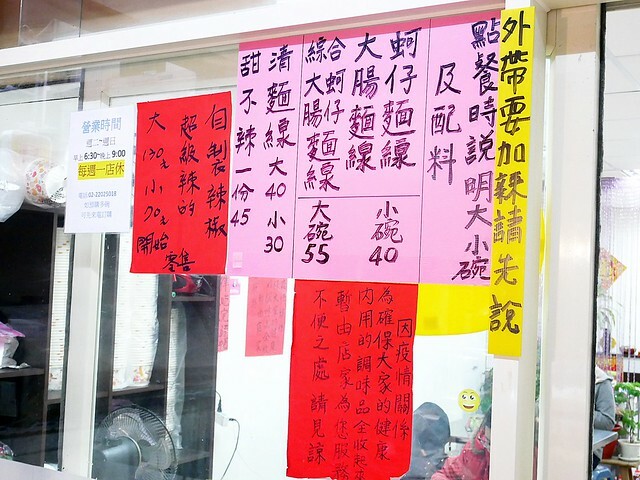 外帶要加辣請先說
點餐時說明大小碗
及配料
蚵仔麵線
大腸麵線
綜合大腸蚵仔麵線
小碗40
大碗55
清麵線大40小30
甜不辣一份45
自製辣椒
超級辣的
大130元小70元
開始零售
營業時間
週二~週日
早上6:30~晚上9:00
每週一店休
電話02-22025018
因疫情關係
為確保大家的健康
內用的調味品全收起來
暫由店家為您服務
不便之處 請見諒